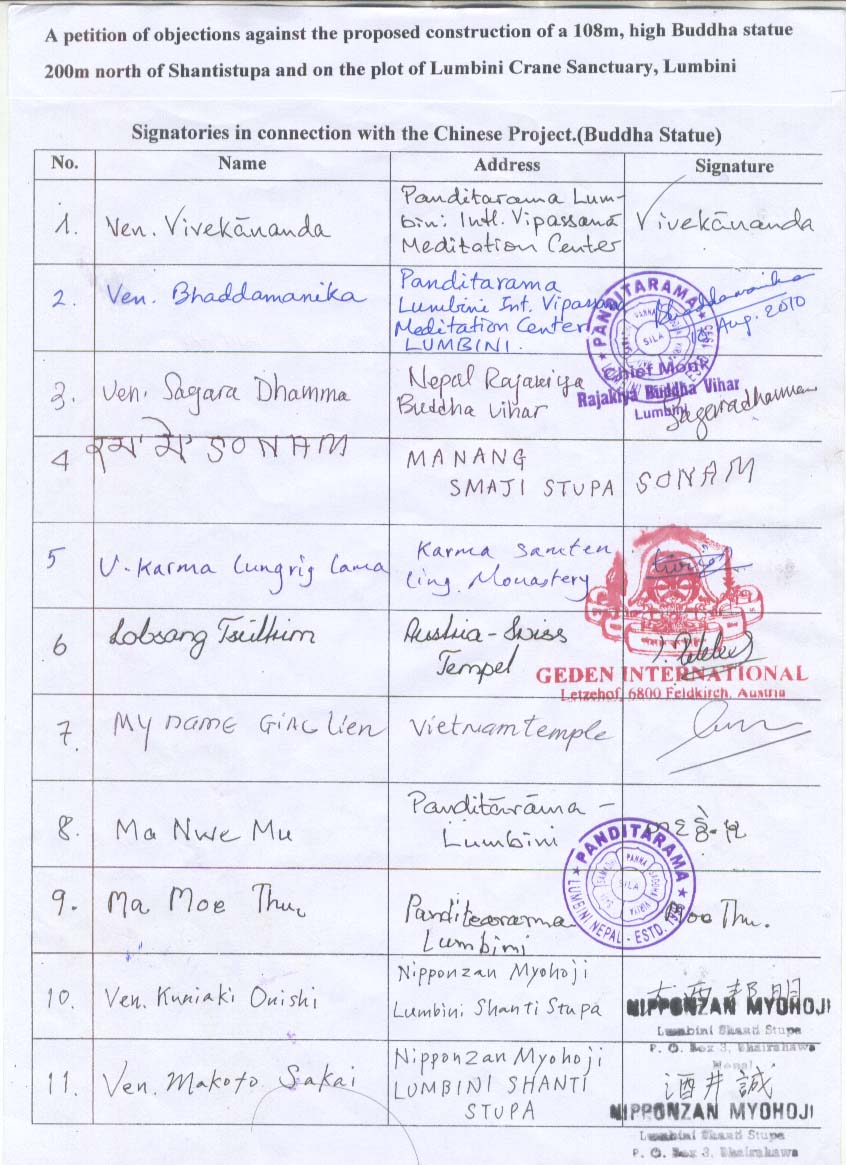 A petition of objections against the proposed construction of a 108m, high Buddha statue
200m north of Shantistupa and on the plot of Lumbini Crane Sanctuary, Lumbini
Signatories in connection with the Chinese Project.(Buddha Statue)
No. Name Address Signature
1. Ven. Vivekānanda Panditarama Lum-
bini Intl. Vipassanā
Meditation Center Vivekānanda
2. Ven. Bhaddamanika Panditarama
Lumbini Int. Vipassana
Meditation Center
LUMBINI. Bhaddamanika
Aug. 2010
PANDITARAMA
SILA
3. Ven. Sagara Dhamma Nepal Rajakiya
Buddha Vihar
Chief Monk
Rajakiya Buddha Vihar
Lumbini
Sagaradhamma
4 SONAM MANANG
SMAJI STUPA SONAM
5 V. Karma Lungrig Lama Karma Samten
Ling. Monastery
6 Lobsang Tsultrim Austria-Swiss
Tempel
GEDEN INTERNATIONAL
Letzehof, 6800 Feldkirch, Austria
7. MY name Giac Lien Vietnam temple
8. Ma Nwe Mu Panditārāma -
Lumbini
PANDITARAMA
LUMBINI NEPAL - ESTD.
PANNA
SILA
9. Ma Moe Thu Panditarama
Lumbini Moe Thu.
10. Ven. Kuniaki Onishi Nipponzan Myohoji
Lumbini Shanti Stupa 大西邦明
NIPPONZAN MYOHOJI
Lumbini Shanti Stupa
P. O. Box 3, Bhairahawa
Nepal
11. Ven. Makoto Sakai Nipponzan Myohoji
LUMBINI SHANTI
STUPA 酒井誠
NIPPONZAN MYOHOJI
Lumbini Shanti Stupa
P. O. Box 3, Bhairahawa